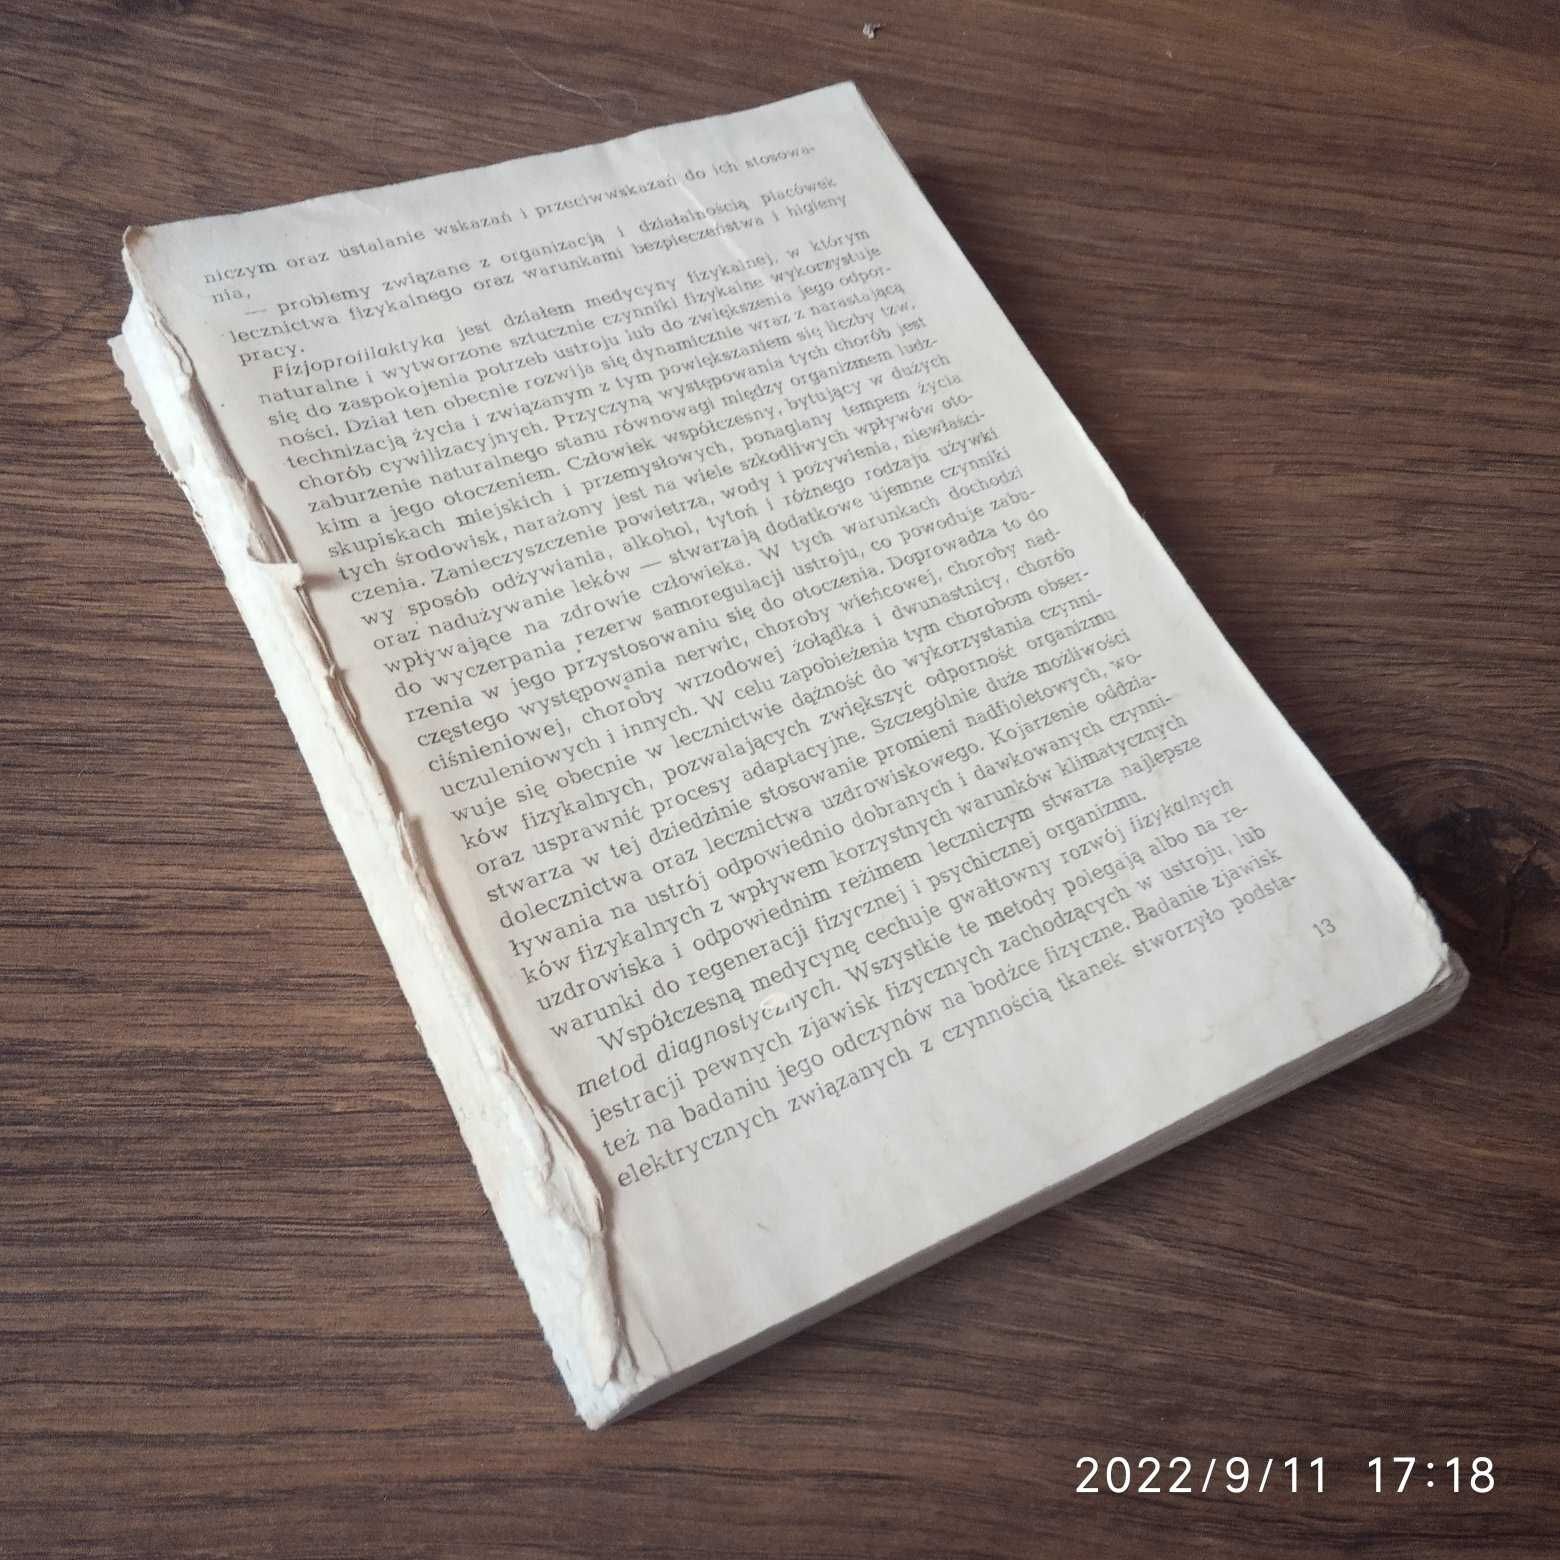 niczym oraz ustalanie wskazań i przeciwwskazań do ich stosowa-
nia,
— problemy związane z organizacją i działalnością placówek
lecznictwa fizykalnego oraz warunkami bezpieczeństwa i higieny
pracy.
Fizjoprofilaktyka jest działem medycyny fizykalnej, w którym
naturalne i wytworzone sztucznie czynniki fizykalne wykorzystuje
się do zaspokojenia potrzeb ustroju lub do zwiększenia jego odpor-
ności. Dział ten obecnie rozwija się dynamicznie wraz z narastającą
technizacją życia i związanym z tym powiększaniem się liczby tzw.
chorób cywilizacyjnych. Przyczyną występowania tych chorób jest
zaburzenie naturalnego stanu równowagi między organizmem ludz-
kim a jego otoczeniem. Człowiek współczesny, bytujący w dużych
skupiskach miejskich i przemysłowych, ponaglany tempem życia
tych środowisk, narażony jest na wiele szkodliwych wpływów oto-
czenia. Zanieczyszczenie powietrza, wody i pożywienia, niewłaści-
wy sposób odżywiania, alkohol, tytoń i różnego rodzaju używki
oraz nadużywanie leków — stwarzają dodatkowe ujemne czynniki
wpływające na zdrowie człowieka. W tych warunkach dochodzi
do wyczerpania rezerw samoregulacji ustroju, co powoduje zabu-
rzenia w jego przystosowaniu się do otoczenia. Doprowadza to do
częstego występowania nerwic, choroby wieńcowej, choroby nad-
ciśnieniowej, choroby wrzodowej żołądka i dwunastnicy, chorób
uczuleniowych i innych. W celu zapobieżenia tym chorobom obser-
wuje się obecnie w lecznictwie dążność do wykorzystania czynni-
ków fizykalnych, pozwalających zwiększyć odporność organizmu
oraz usprawnić procesy adaptacyjne. Szczególnie duże możliwości
stwarza w tej dziedzinie stosowanie promieni nadfioletowych, wo-
dolecznictwa oraz lecznictwa uzdrowiskowego. Kojarzenie oddzia-
ływania na ustrój odpowiednio dobranych i dawkowanych czynni-
ków fizykalnych z wpływem korzystnych warunków klimatycznych
uzdrowiska i odpowiednim reżimem leczniczym stwarza najlepsze
warunki do regeneracji fizycznej i psychicznej organizmu.
Współczesną medycynę cechuje gwałtowny rozwój fizykalnych
metod diagnostycznych. Wszystkie te metody polegają albo na re-
jestracji pewnych zjawisk fizycznych zachodzących w ustroju, lub
też na badaniu jego odczynów na bodźce fizyczne. Badanie zjawisk
elektrycznych związanych z czynnością tkanek stworzyło podsta-
13
2022/9/11 17:18